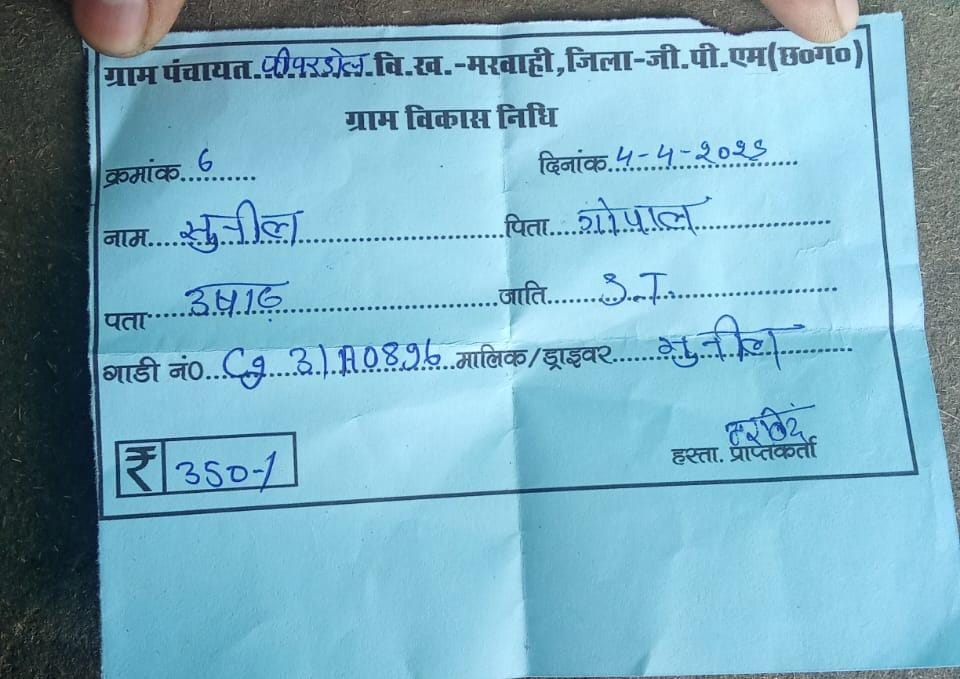 ग्राम पंचायत..पीपरडोल.वि.ख.-मरवाही,जिला-जी.पी.एम(छ०ग०)
ग्राम विकास निधि
क्रमांक 6 दिनांक 4-4-२०२३
नाम सुनील पिता गोपाल
पता उषाढ़ जाति S.T.
गाडी नं0 Cg 31 A0896 मालिक/ड्राइवर सुनील
₹ 350-/
हस्ता. प्राप्तकर्ता